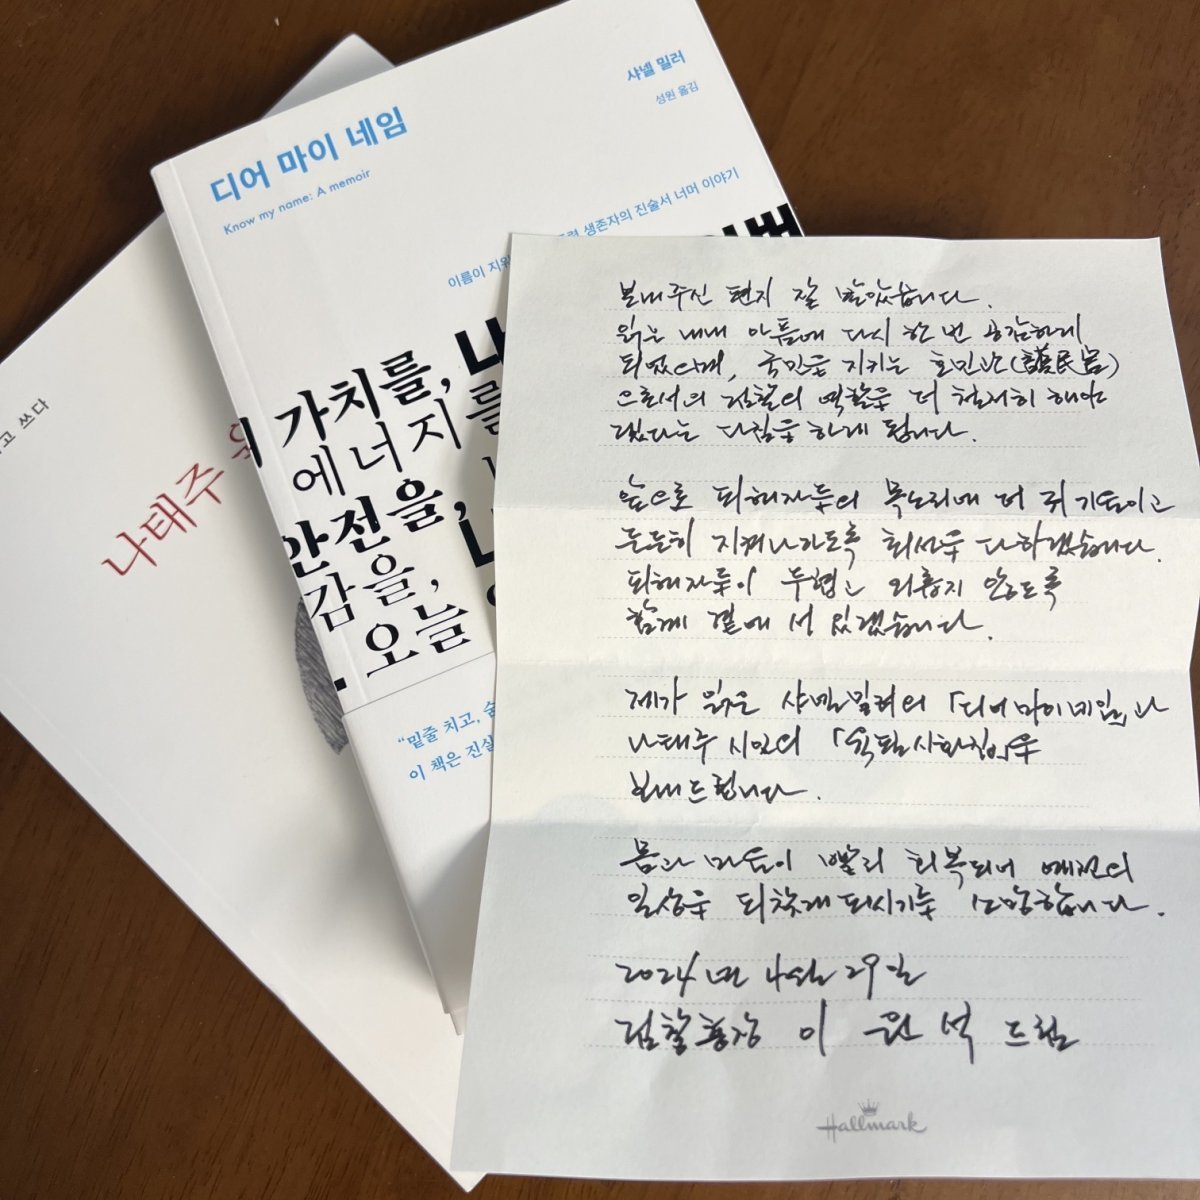 고 쓰다
나태주
디어 마이 네임
Know my name: A memoir
샤넬 밀러
성원 옮김
이름이 지워
생존자의 진술서 너머 이야기
가치를,
에너지를
안전을,
감을,
오늘
“밑줄 치고, 숨
이 책은 진실
보내주신 편지 잘 받았습니다.
읽는 내내 아픔에 다시 한 번 공감하게
되었으며, 국민을 지키는 호민관(護民官)
으로서의 검찰의 역할을 더 철저히 해야
겠다는 다짐을 하게 됩니다.
앞으로 피해자들의 목소리에 더 귀 기울이고
든든히 지켜나가도록 최선을 다하겠습니다.
피해자들이 두렵고 외롭지 않도록
함께 곁에 서 있겠습니다.
제가 읽은 샤넬밀러의 「디어 마이 네임」과
나태주 시인의 「연필시화집」을
보내드립니다.
몸과 마음이 빨리 회복되어 예전의
일상을 되찾게 되시기를 소망합니다.
2024년 4월 29일
검찰총장 이 원 석 드림
Hallmark